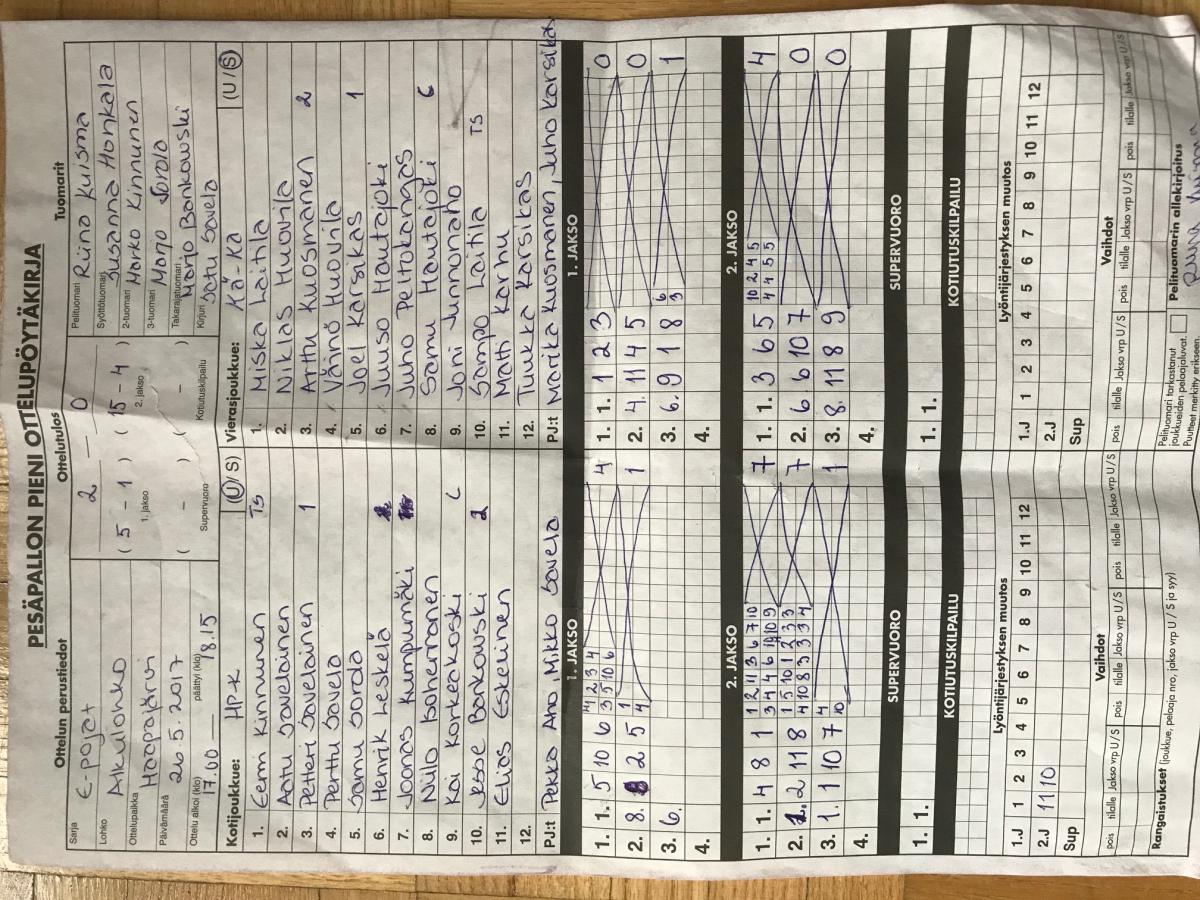 PESÄPALLON PIENI OTTELUPÖYTÄKIRJA
Ottelun perustiedot Ottelutulos Tuomarit
Sarja E-pojat
Lohko Alkulohko
Ottelupaikka Haapajärvi
Päivämäärä 26.5.2017
Ottelu alkoi (klo) 17.00 päättyi (klo) 18.15
2 — 0
( 5 - 1 ) ( 15 - 4 )
1. jakso 2. jakso
( - ) ( - )
Supervuoro Kotiutuskilpailu
Pelituomari Riina Kuisma
Syöttötuomari Susanna Honkala
2-tuomari Marko Kinnunen
3-tuomari Marjo Sorola
Takarajatuomari Marjo Bankowski
Kirjuri Satu Sovela
Kotijoukkue: HPK (U/S)
1. Eemi Kinnunen TS
2. Aatu Savelainen
3. Petteri Savelainen 1
4. Perttu Sovela
5. Samu Sorola
6. Henrik Leskelä
7. Joonas Kumpumäki
8. Niilo
9. Kai Korkeakoski C
10. Jesse Bankowski 2
11. Elias Eskelinen
12.
PJ:t Pekko Aho, Mikko Sovela
Vierasjoukkue: Kä-Ka (U/S)
1. Miska Laitila
2. Niklas Huovila
3. Arttu Kuosmanen 2
4. Väinö Huovila
5. Joel Karsikas 1
6. Juuso Hautajoki
7. Juho Peltokangas
8. Samu Hautajoki 6
9. Joni Junnonaho
10. Sampo Laitila TS
11. Matti Karhu
12. Tuukka Karsikas
PJ:t Marika Kuosmanen, Juho Karsikas
1. JAKSO 1. JAKSO
1. 1. 5 10 6 4
2. 8. 2 5 1
3. 6.
4.
1. 1. 1 2 3 0
2. 4. 11 4 5 0
3. 6. 9 1 8 6 3 1
4.
2. JAKSO 2. JAKSO
1. 1. 4 8 1 7
2. 2 11 8 7
3. 1. 1 10 7 4 10 1
4.
1. 1. 3 6 5 10 2 4 5 4 4 5 5 4
2. 6 6 10 7 0
3. 8. 11 8 9 0
4.
SUPERVUORO SUPERVUORO
1. 1. 1. 1.
KOTIUTUSKILPAILU KOTIUTUSKILPAILU
Lyöntijärjestyksen muutos Lyöntijärjestyksen muutos
1.J 1 2 3 4 5 6 7 8 9 10 11 12 1.J 1 2 3 4 5 6 7 8 9 10 11 12
2.J 11 10 2.J
Sup Sup
Vaihdot Vaihdot
pois tilalle Jakso vrp U/S pois tilalle Jakso vrp U/S pois tilalle Jakso vrp U/S pois tilalle Jakso vrp U/S pois tilalle Jakso vrp U/S pois tilalle Jakso vrp U/S
Rangaistukset (joukkue, pelaaja nro, jakso vrp U / S ja syy)
Pelituomari tarkastanut
joukkueiden pelaajaluvat.
Puutteet merkitty erikseen.
Pelituomarin allekirjoitus